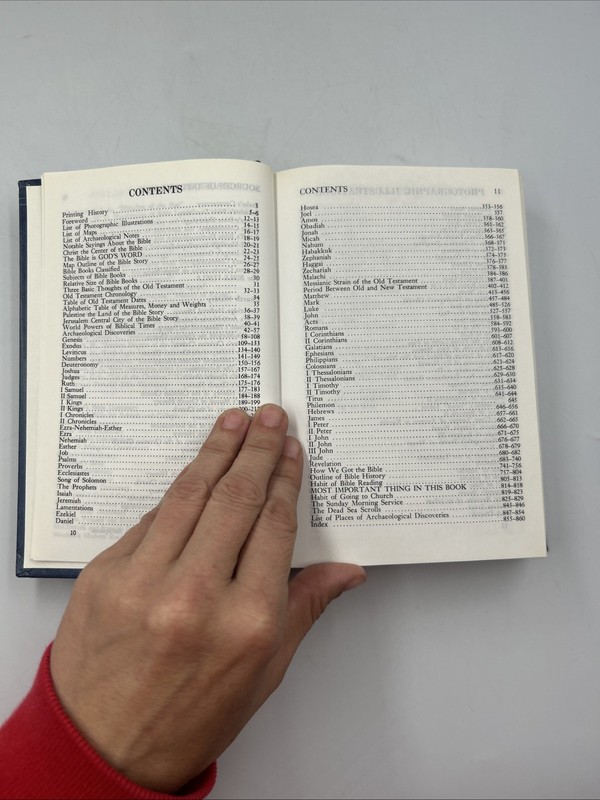 CONTENTS
Printing History 3
Foreword 5-6
List of Photographic Illustrations 12-13
List of Maps 14-15
List of Archaeological Notes 16-17
Notable Sayings About the Bible 18-19
Christ the Center of the Bible 20-21
The Bible is GOD'S WORD 22-23
Map Outline of the Bible Story 24-25
Bible Books Classified 26-27
Subjects of Bible Books 28-29
Relative Size of Bible Books 30
Three Basic Thoughts of the Old Testament 31
Old Testament Chronology 32-33
Table of Old Testament Dates 34
Alphabetic Table of Measures, Money and Weights 35
Palestine the Land of the Bible Story 36-37
Jerusalem Central City of the Bible Story 38-39
World Powers of Biblical Times 40-41
Archaeological Discoveries 42-57
Genesis 58-108
Exodus 109-133
Leviticus 134-140
Numbers 141-149
Deuteronomy 150-156
Joshua 157-167
Judges 168-174
Ruth 175-176
I Samuel 177-183
II Samuel 184-188
I Kings 189-199
II Kings
I Chronicles
II Chronicles
Ezra-Nehemiah-Esther
Ezra
Nehemiah
Esther
Job
Psalms
Proverbs
Ecclesiastes
Song of Solomon
The Prophets
Isaiah
Jeremiah
Lamentations
Ezekiel
Daniel
10
CONTENTS 11
Hosea
Joel 357
Amos 358-360
Obadiah 361-362
Jonah 363-365
Micah 366-367
Nahum 368-371
Habakkuk 372-373
Zephaniah 374-375
Haggai 376-377
Zechariah 378-383
Malachi 384-386
Messianic Strain of the Old Testament 387-401
Period Between Old and New Testament 402-412
Matthew 413-456
Mark 457-484
Luke 485-526
John 527-557
Acts 558-583
Romans 584-592
I Corinthians 593-600
II Corinthians 601-607
Galatians 608-612
Ephesians 613-616
Philippians 617-620
Colossians
I Thessalonians 625-628
II Thessalonians 629-630
I Timothy 631-634
II Timothy 635-640
Titus 641-644
Philemon 645
Hebrews 646-656
James 657-661
I Peter 662-665
II Peter 666-670
I John 671-675
II John 676-677
III John 678-679
Jude 680-682
Revelation 683-740
How We Got the Bible 741-756
Outline of Bible History 757-804
Habit of Bible Reading 805-813
MOST IMPORTANT THING IN THIS BOOK 814-818
Habit of Going to Church 819-823
The Sunday Morning Service 825-829
The Dead Sea Scrolls 845-846
List of Places of Archaeological Discoveries 847-854
Index 855-860